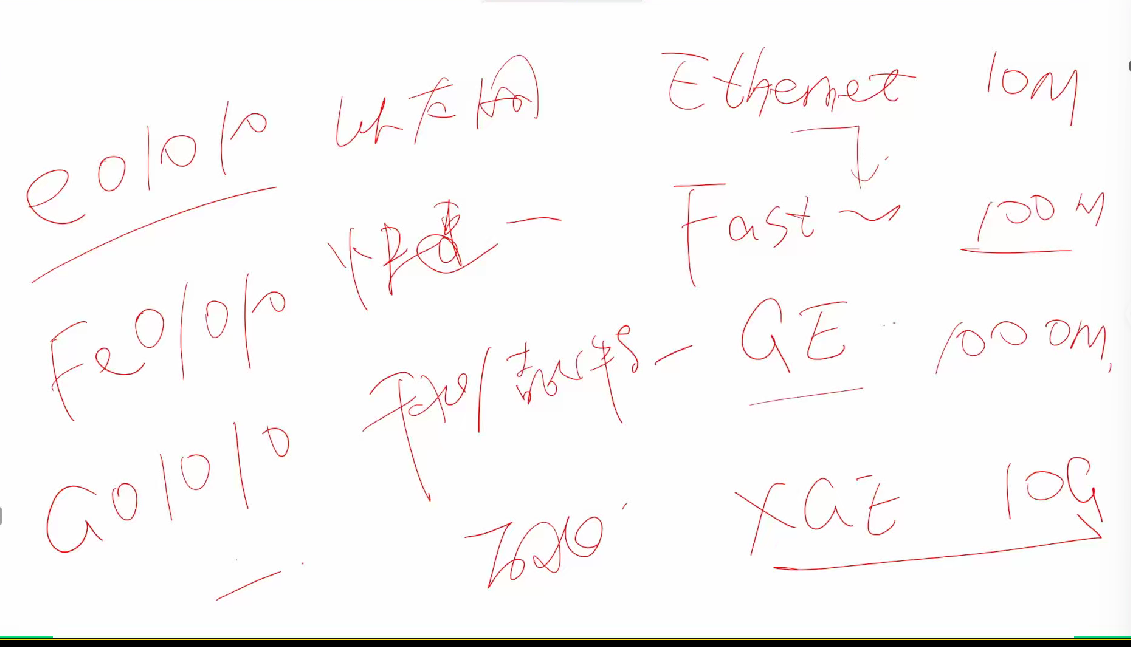 e0/0/0 以太网 Ethernet 10M
Fe0/0/0 快速 — Fast ~ 100M
G0/0/0 千兆/ — GE 1000M
万兆 XGE 10G